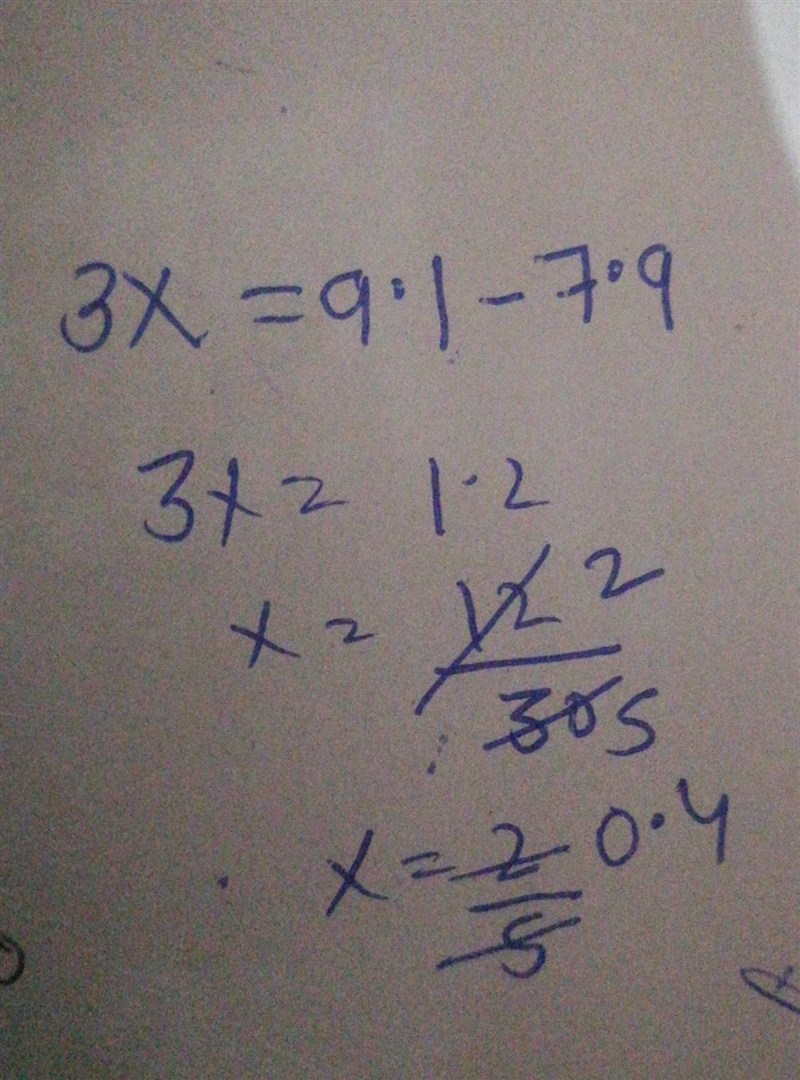 3x = 9.1 - 7.9
3x = 1.2
x = 12 2
30 5
x = 2 0.4
5